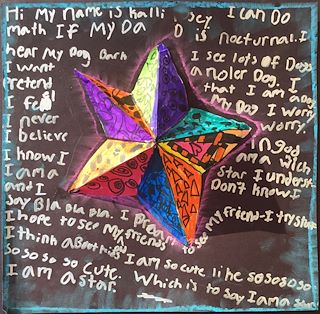 Hi My name is kalli sey I can Do
math If My Da D is nocturnal. I
hear My Dog Bark I see lots of Dogs
I want a noler Dog. I
pretend that I am a Dog
I feel My Dog I worry
I never worry.
I believe In god
I know I am a wich
I am a Star I underst-
and I Don't know I
say Bla Bla Bla. I Dream
I hope to see My friends to see My friend-I try stuff
I think about High I am so cute like so so so so
so so so so cute. Which is to say I am a star.
I am a star.